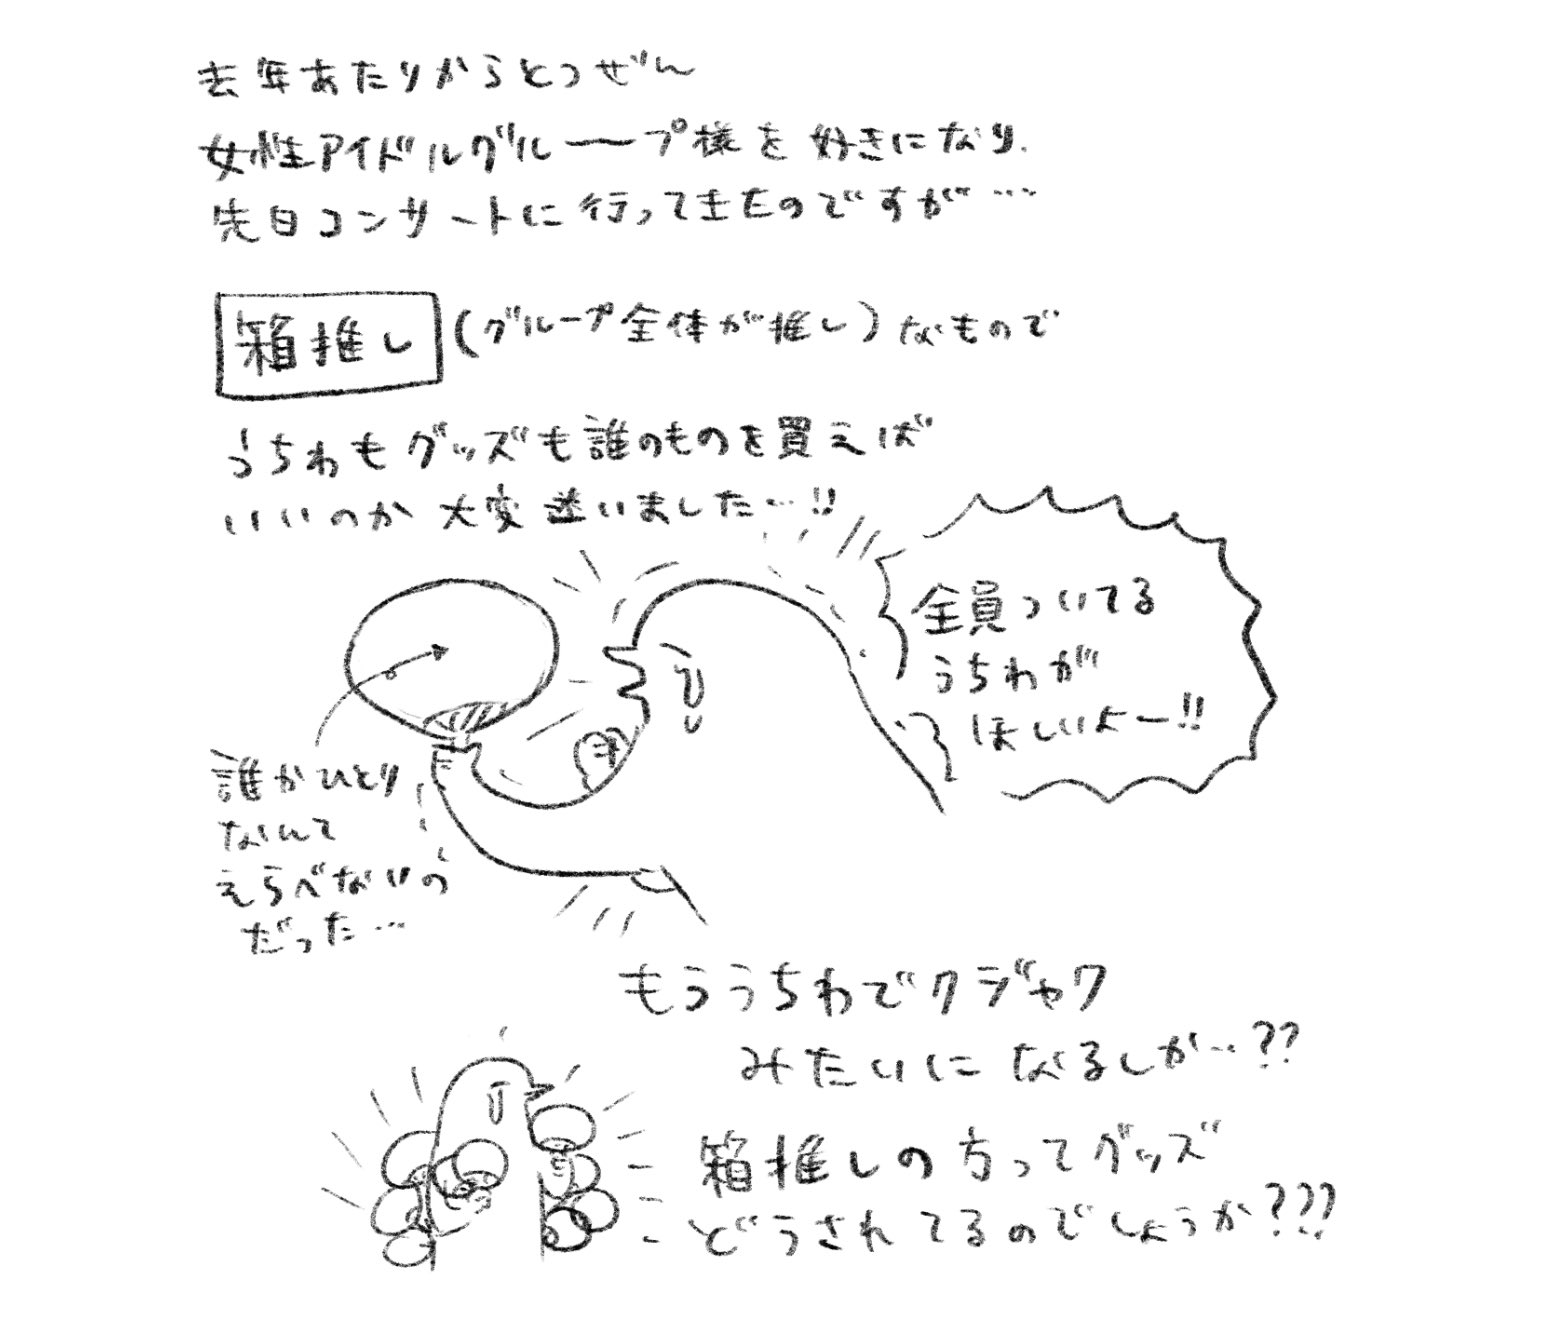 去年あたりからとつぜん
女性アイドルグループ様を好きになり、
先日コンサートに行ってきたのですが…
箱推し(グループ全体が推し)なもので
うちわもグッズも誰のものを買えば
いいのか大変迷いました…!!
全員ついてる
うちわが
ほしいよー!!
誰かひとり
なんて
えらべないの
だった…
もううちわでクジャク
みたいになるしか…??
箱推しの方ってグッズ
どうされてるのでしょうか???